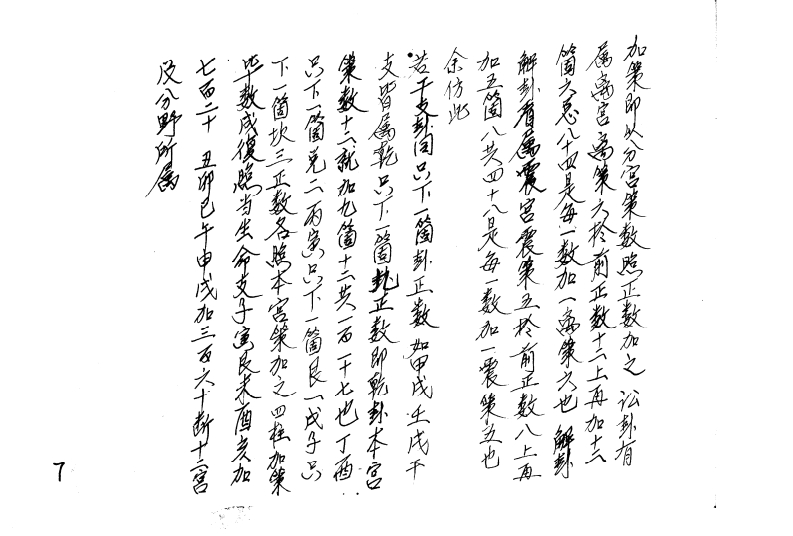 加策即以分宫策数照正数加之 讼卦有
属离宫离策六於前正数十二上再加十二
箇六忩八十四是每一数加一离策六也 解卦
解卦有属震宫震策五於前正数八上再
加五箇八共四十八是每一数加一震策五也
余仿此
若干支卦同只下一箇卦正数 如甲戌壬戌干
支皆属乾只下一箇乾正数即乾卦本宫
策数十二就加九箇十二共一百一十七也丁酉
只下一箇兑二丙寅只下一箇艮一戊子只
下一箇坎三正数各照本宫策加之四柱加策
毕数成復照当生命支子寅艮未酉亥加
七百二十 丑卯巳午申戌加三百六十断十二宫
及分野所属
7